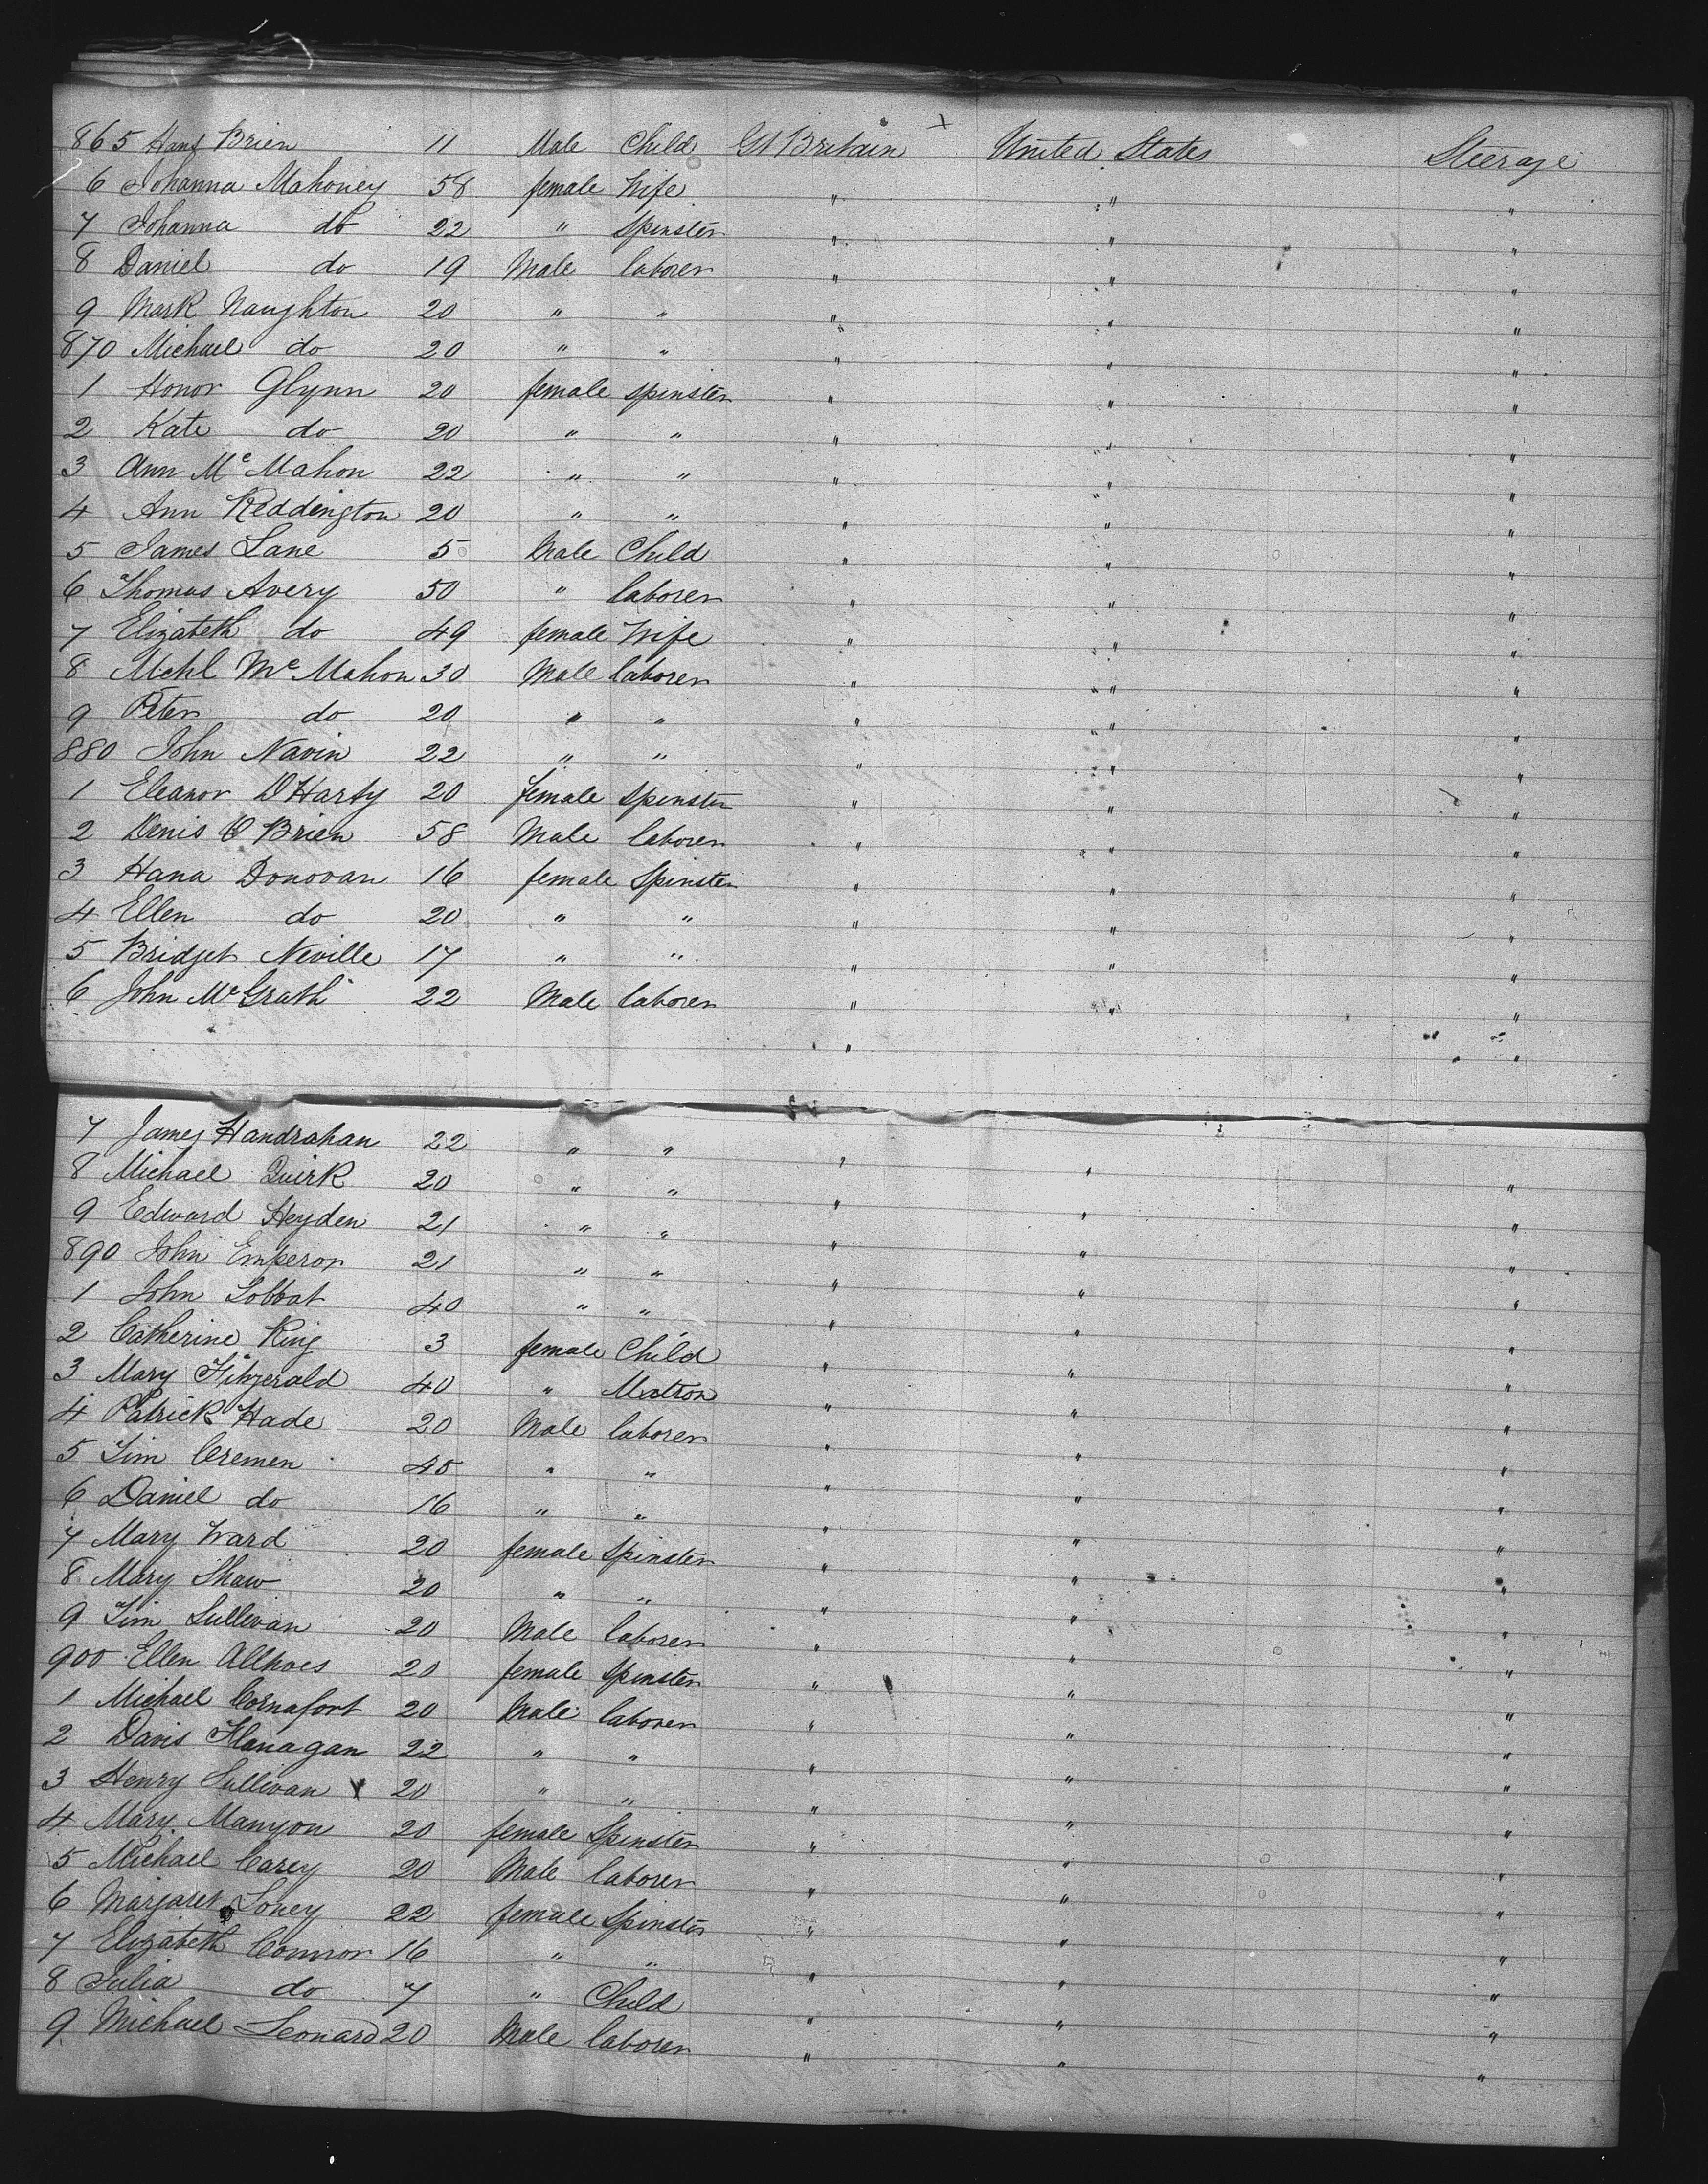 865 Hans Brien 11 Male Child Gt Britain United States Steerage
6 Johanna Mahoney 58 female Wife " " "
7 Johanna do 22 " Spinster " " "
8 Daniel do 19 Male laborer " " "
9 Mark Naughton 20 " " " " "
870 Michael do 20 " " " " "
1 Honor Glynn 20 female spinster " " "
2 Kate do 20 " " " " "
3 Ann Mc Mahon 22 " " " " "
4 Ann Reddington 20 " " " " "
5 James Lane 5 Male Child " " "
6 Thomas Avery 50 " laborer " " "
7 Elizabeth do 49 female Wife " " "
8 Mchl Mc Mahon 30 Male laborer " " "
9 Peter do 20 " " " " "
880 John Navin 22 " " " " "
1 Eleanor O Harty 20 female Spinster " " "
2 Denis O Brien 58 Male laborer " " "
3 Hana Donovan 16 female Spinster " " "
4 Ellen do 20 " " " " "
5 Bridget Neville 17 " " " " "
6 John Mc Grath 22 Male laborer " " "
" "
7 James Handrahan 22 " " " " "
8 Michael Quirk 20 " " " " "
9 Edward Heyden 21 " " " " "
890 John Emperor 21 " " " " "
1 John 40 " " " " "
2 Catherine King 3 female Child " " "
3 Mary Fitzgerald 40 " Matron " " "
4 Patrick Hade 20 Male laborer " " "
5 Tim Cremen 45 " " " " "
6 Daniel do 16 " " " " "
7 Mary Ward 20 female Spinster " " "
8 Mary Shaw 20 " " " " "
9 Tim Sullivan 20 Male laborer " " "
900 Ellen 20 female Spinster " " "
1 Michael Cornafort 20 Male laborer " " "
2 Davis Flanagan 22 " " " " "
3 Henry Sullivan 20 " " " " "
4 Mary Manyon 20 female Spinster " " "
5 Michael Carey 20 Male laborer " " "
6 Margaret Loney 22 female Spinster " " "
7 Elizabeth Connor 16 " " " " "
8 Julia do 7 " Child " " "
9 Michael Leonard 20 Male laborer " " "